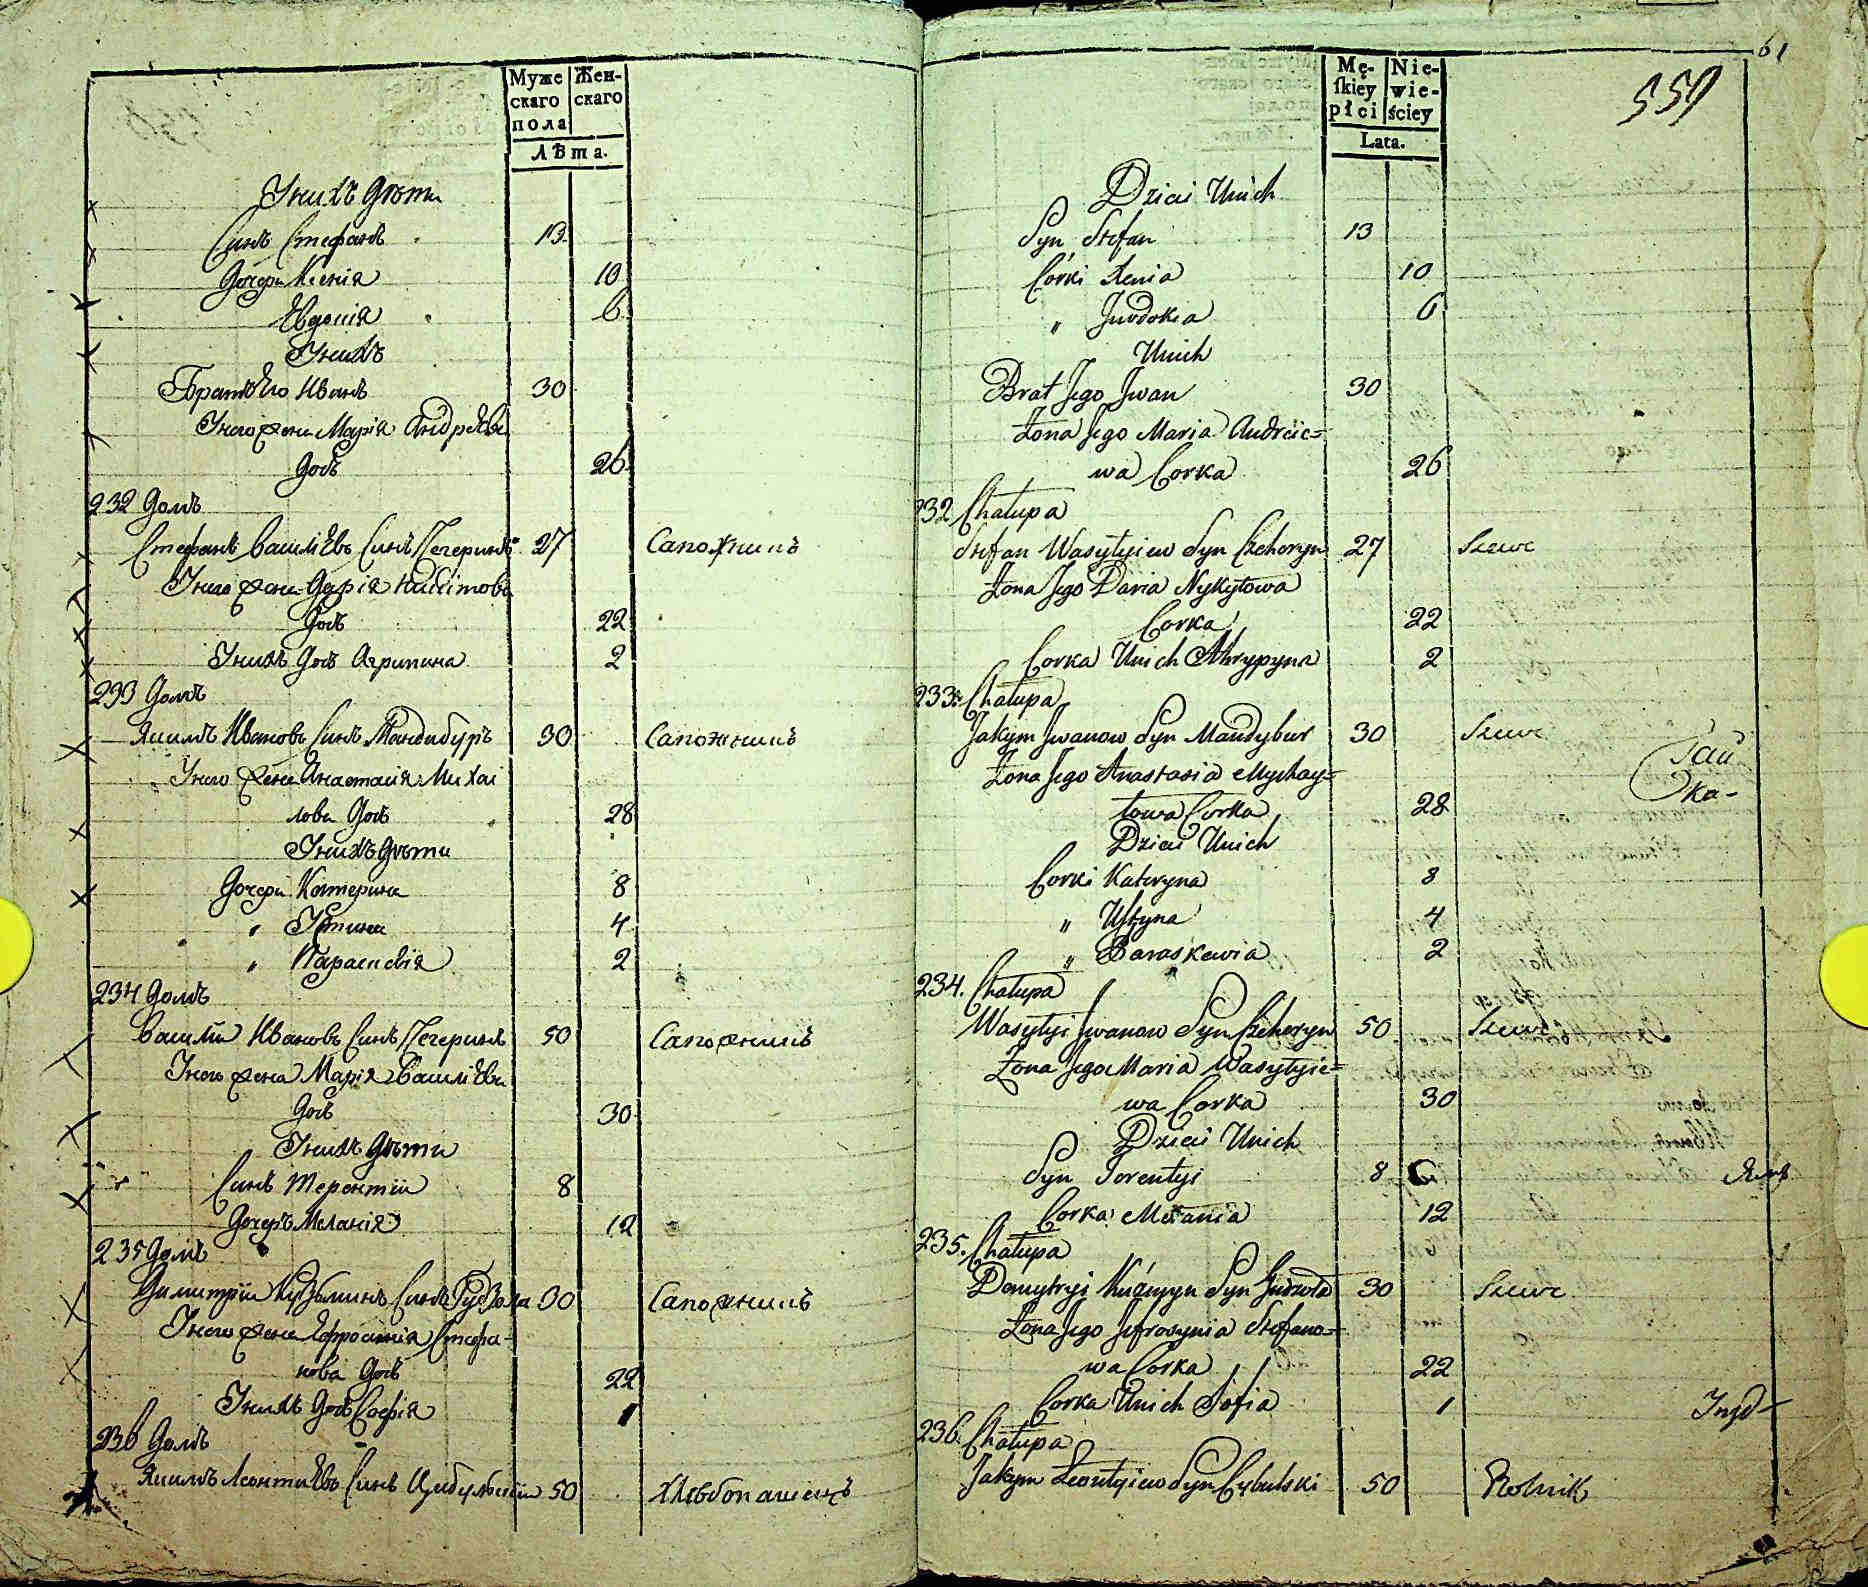 Муже
скаго
пола
Жен-
скаго
Лѣта.
Унихъ дѣти
Синъ Стефанъ 13
Дочери Ксенія 10
Евдокія 6
Унихъ
Братъ Его Иванъ 30
Унего жена Марія Андрѣева
дочь 26
232 Домъ
Стефанъ Василіевъ Синъ Чегеринъ 27 Сапожникъ
Унего жена Дарія Никитова
дочь 22
Унихъ дочь Агрипина 2
233 Домъ
Якимъ Ивановъ Синъ Мандибуръ 30 Сапожникъ
Унего жена Анастасія Михаі
лова дочь 28
Унихъ дѣти
Дочери Катерина 8
" Устина 4
" Парасковія 2
234 Домъ
Василій Ивановъ Синъ Чегеринъ 50 Сапожникъ
Унего жена Марія Василіева
дочь 30
Унихъ дѣти
Синъ Терентій 8
Дочеръ Меланія 12
235 Домъ
Димитрій Кузьминъ Синъ Гудзола 30 Сапожникъ
Унего жена Ефросинія Стефа-
нова дочь 22
Унихъ дочь Софія 1
236 Домъ
Якимъ Леонтіевъ Синъ Цибульскій 50 Хлѣбопашецъ
61
559
Mę-
ſkiey
płci
Nie-
wie-
ściey
Lata.
Dzieci Unich
Syn Stefan 13
Corki Xenia 10
" Jwdokia 6
Unich
Brat Jego Jwan 30
Żona Jego Maria Andreie=
wa Corka 26
232 Chałupa
Stefan Wasylyiew Syn Czeheryn 27 Szewc
Żona Jego Daria Nykytowa
Corka 22
Corka Unich Ahrypyna 2
233. Chałupa
Jakym Jwanow Syn Mandybur 30 Szewc
Żona Jego Anastasia Mychay=
łowa Corka 28
Dzieci Unich
Corki Kateryna 8
" Ustyna 4
" Paraskewia 2
234. Chałupa
Wasylyi Jwanow Syn Czeheryn 50 Szewc
Żona Jego Maria Wasylyie=
wa Corka 30
Dzieci Unich
Syn Terentyi 8
Corka Melania 12
235. Chałupa
Domytryi Kuźmyn Syn Gudzoła 30 Szewc
Żona Jego Jefrosynia Stefano=
wa Corka 22
Corka Unich Sofia 1
236 Chałupa
Jakym Leontyiew Syn Cybulski 50 Rolnik